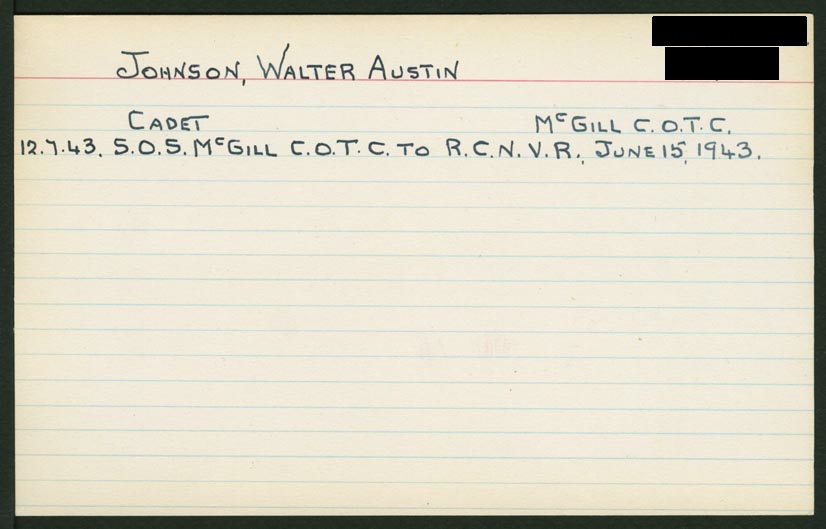 Johnson, Walter Austin
Cadet McGill C.O.T.C.
12.7.43. S.O.S. McGill C.O.T.C. to R.C.N.V.R., June 15, 1943.